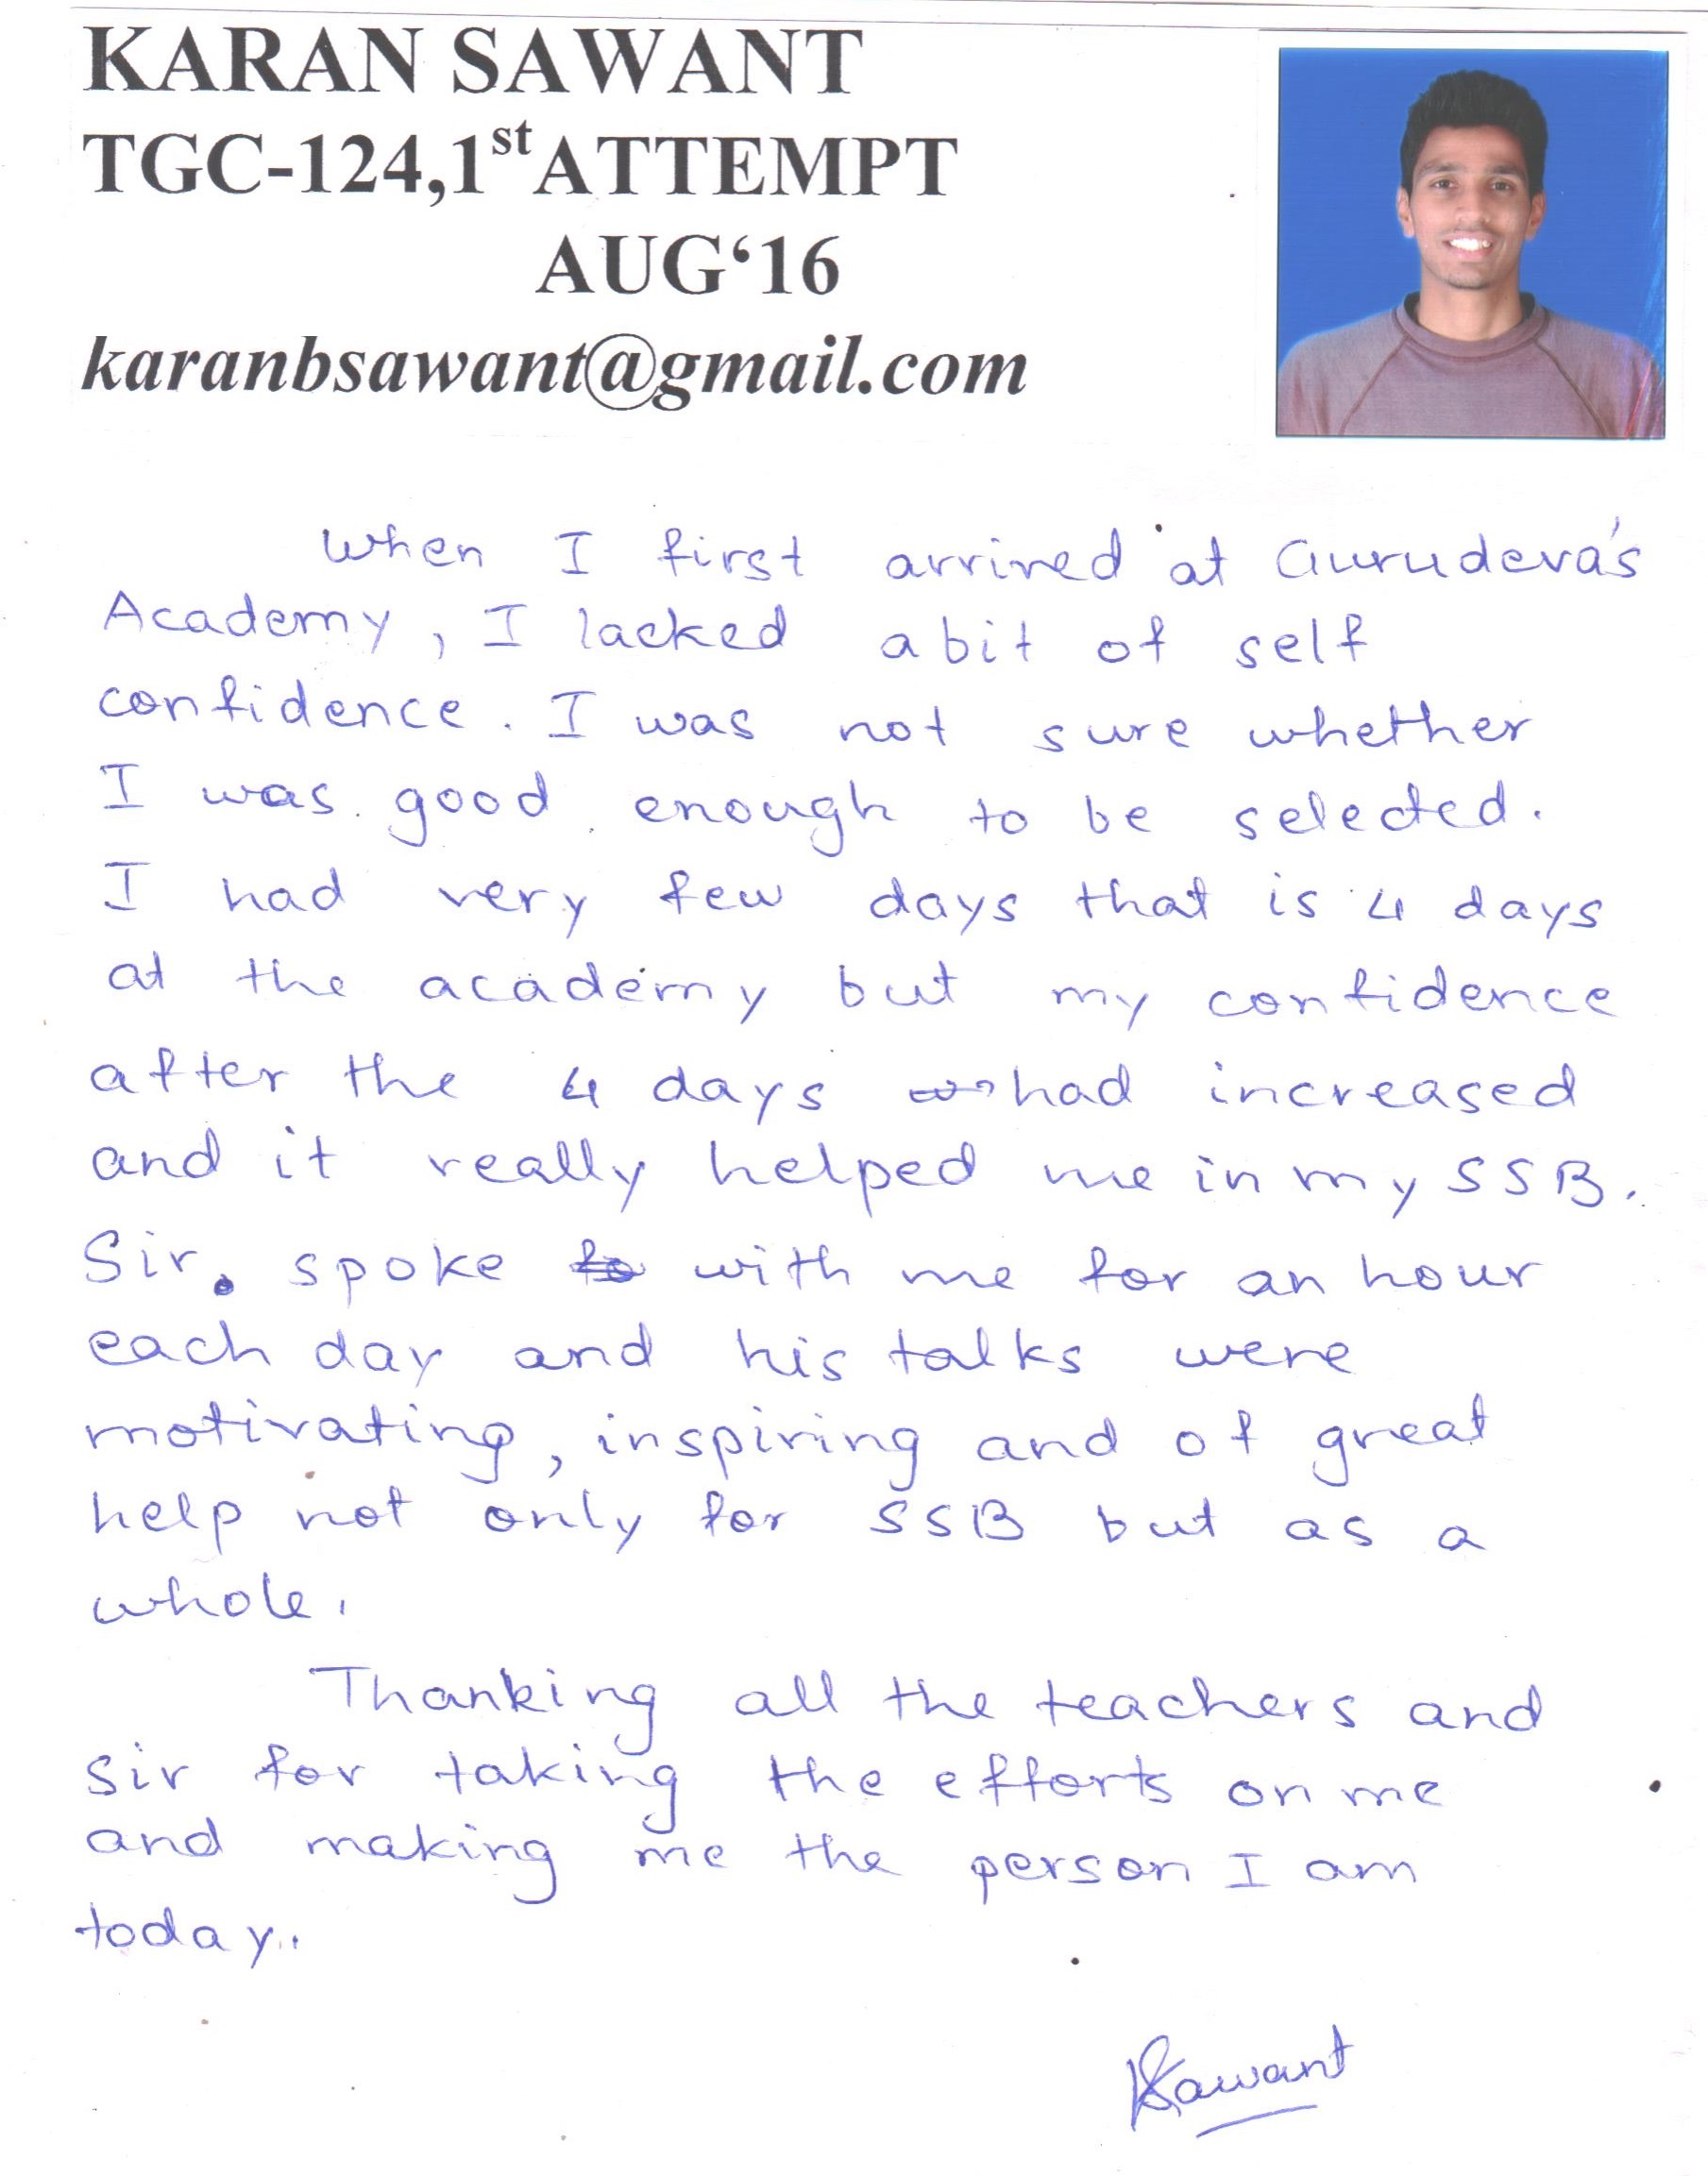 KARAN SAWANT
TGC-124,1st ATTEMPT
AUG‘16
karanbsawant@gmail.com
When I first arrived at Gurudeva's
Academy, I lacked a bit of self
confidence. I was not sure whether
I was good enough to be selected.
I had very few days that is 4 days
at the academy but my confidence
after the 4 days had increased
and it really helped me in my SSB.
Sir. spoke to with me for an hour
each day and his talks were
motivating, inspiring and of great
help not only for SSB but as a
whole.
Thanking all the teachers and
sir for taking the efforts on me
and making me the person I am
today.
KSawant